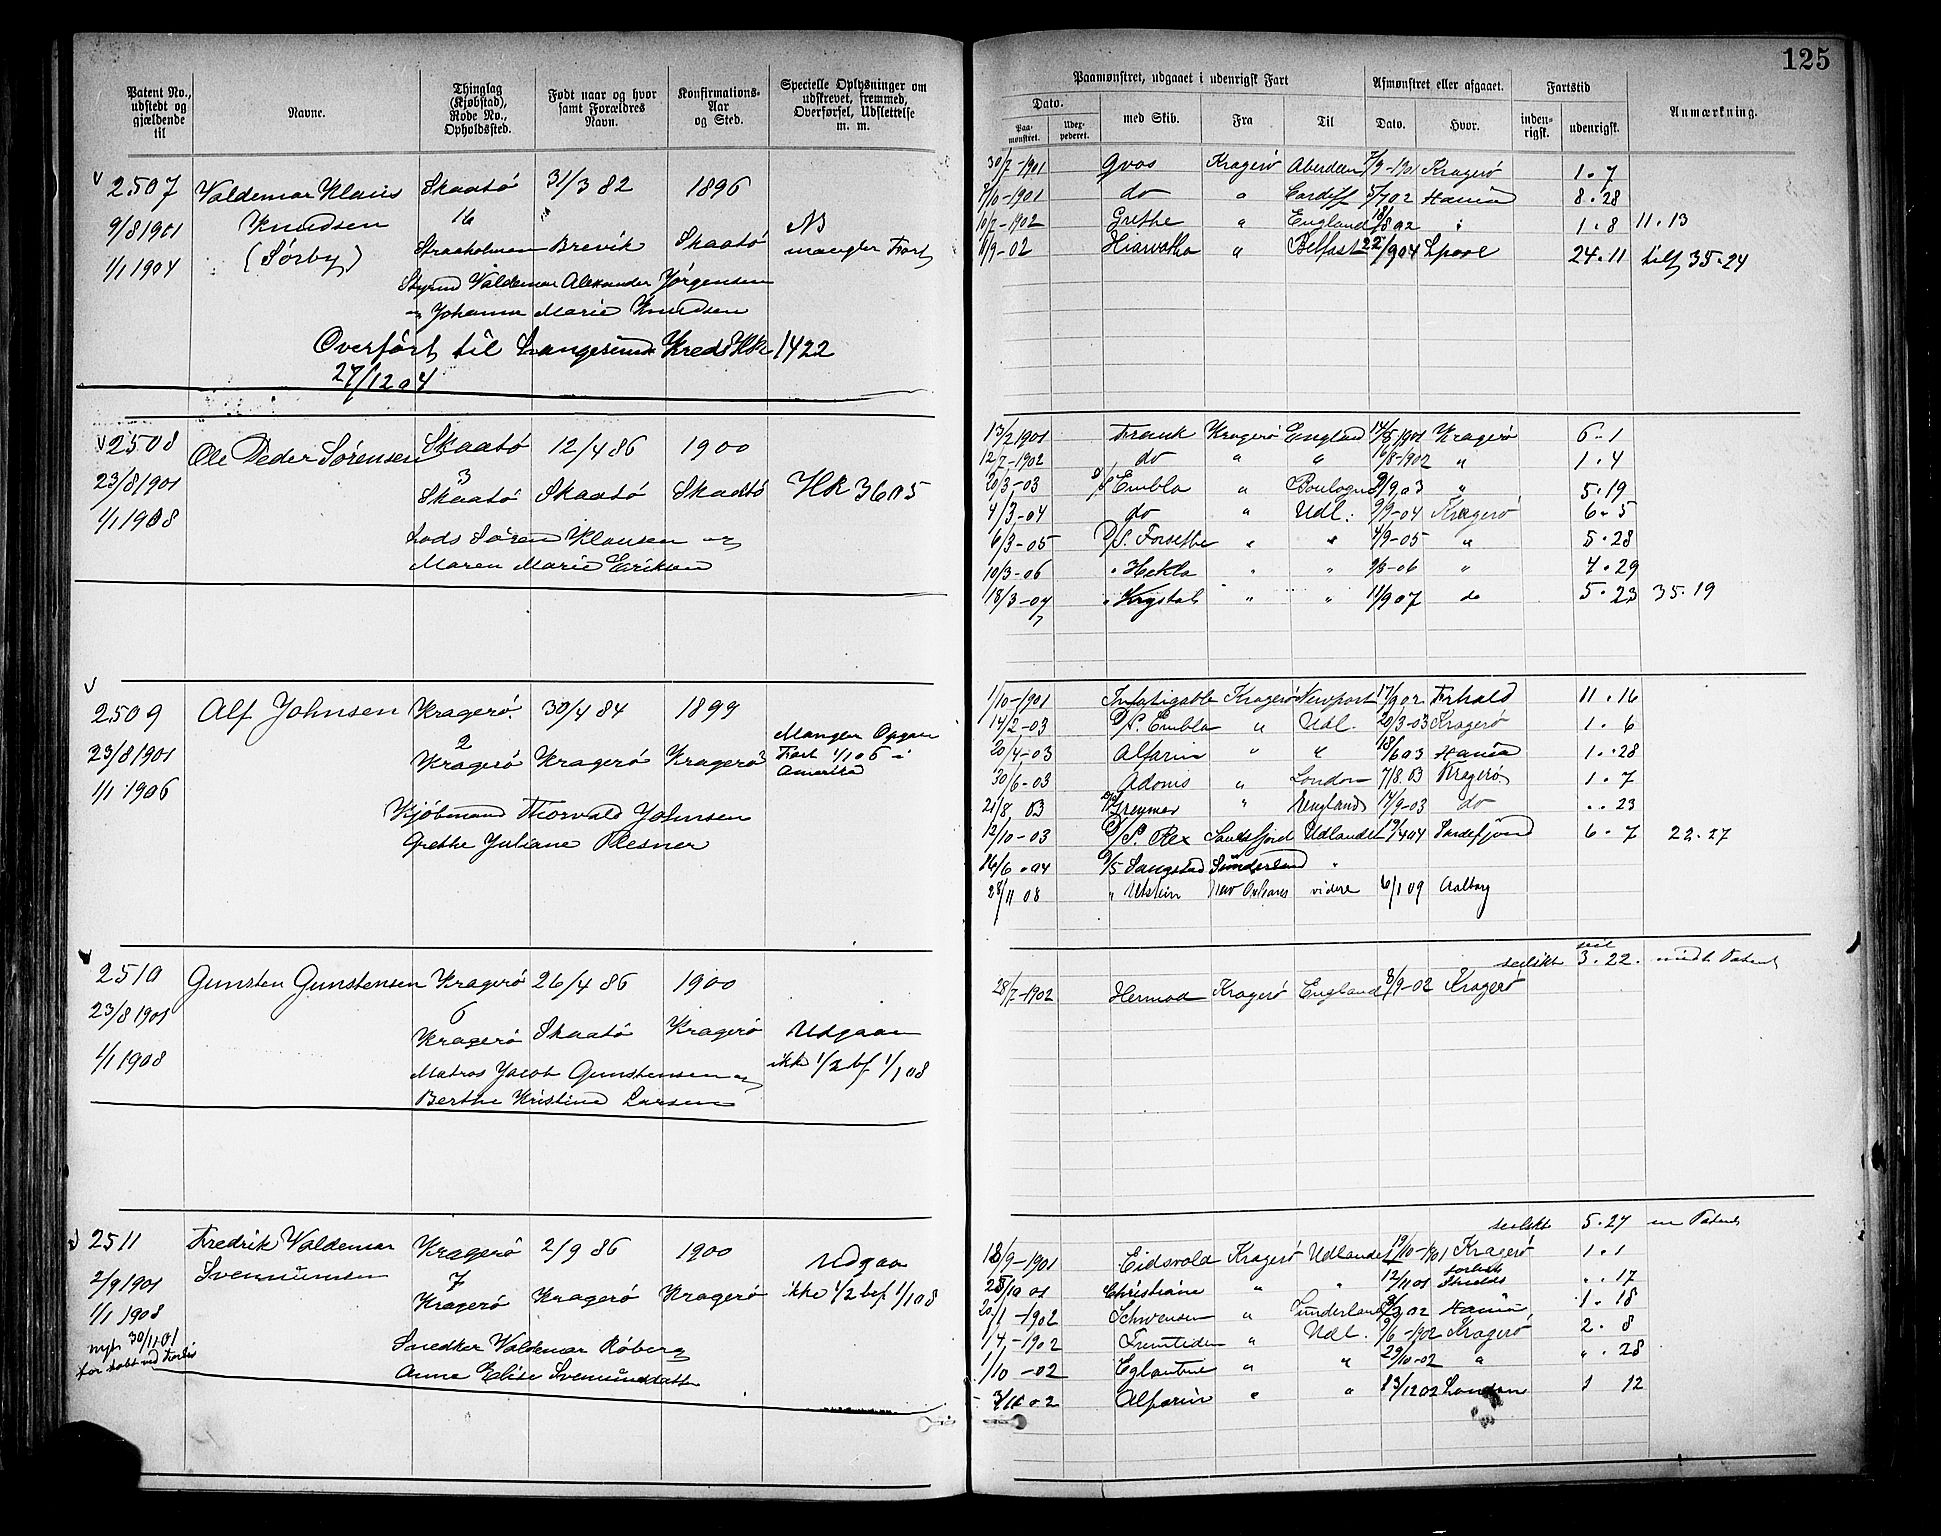 125
Patent No., udstedt og gjældende til
Navne.
Thinglag (Kjøbstad), Rode No., Opholdssted.
Født naar og hvor samt Forældres Navn.
Konfirmations-Aar og Sted.
Specielle Oplysninger om udskrevet, fremmed, Overførsel, Udslettelse m. m.
Paamønstret, udgaaet i udenrigsk Fart
Afmønstret eller afgaaet.
Fartstid
Anmærkning.
Dato.
Paa-mønstret.
Udex-pederet.
med Skib.
Fra
Til
Dato.
Hvor.
inden-rigsk.
udenrigsk.
2507 Valdemar Klaus Skaatö 31/3 82 1896
9/8 1901 Knudsen 16 NB
1/1 1904 (Sørby) Straaholmen Brevik Skaatö mangler Fart
Styrmd Valdemar Alexander Jörgensen
og Johanne Marie Knudsen
Overfört til Langesunds Kreds HR 1422
27/12 04
30/7-1901 Gvos Kragerö Aberdeen 7/9-1901 Kragerö 1.7
/10-1901 do " Cardiff 5/7 02 Havna 8.28
10/7-1902 Grethe " England 18/8 02 " 1.8 11.13
/9-02 Hiawatha " Belfast 22/9 04 Lpool 24.11 tilf 35.24
2508 Ole Peder Sörensen Skaatö 12/4 86 1900
23/8 1901 3
1/1 1908 Skaatö Skaatö Skaatö HR 3605
Lods Sören Klausen og
Maren Marie Eriksen
13/2 1901 Frank Kragerö England 14/8 1901 Kragerö 6.1
12/7-1902 do " " 16/8-1902 " 1.4
20/3-03 D/S Embla " Boulogne 9/9 03 " 5.19
4/3-04 do " Udl. 9/9-04 Kragerö 6.5
6/3-05 D/S. Forsethe " " 4/9-05 " 5.28
10/3-06 " Hekla " " 9/8-06 " 4.29
18/3-07 " Krystal " " 11/9 07 do 5.23 35.19
2509 Alf Johnsen Kragerö. 30/4 84 1899
23/8 1901 2 Mangler Opgave
1/1 1906 Kragerö Kragerö Kragerö Fart 1/1 06 i Amerika
Kjöbmand Thorvald Johnsen
Grethe Juliane Plesner
1/10-1901 Indefatigable Kragerö Newport 17/9 02 Frhald 11.16
14/2-03 D/S. Embla " Udl. 20/3-03 Kragerö 1.6
20/4-03 Alfarin " " 18/6 03 Havna 1.28
30/6-03 Adonis " London 7/8.03 Kragerö 1.7
21/8 03 Greymar " England 14/9-03 do ".23
12/10-03 D/S. Rex Sandefjord Udlandet 19/4 04 Sandefjord 6.7 22.27
16/6.04 D/S Sangstad Sunderland "
28/11 08 " Utstein New Orleans videre 6/1 09 Aalborg
2510 Gunsten Gunstensen Kragerö 26/4 86 1900
23/8 1901 6
1/1 1908 Kragerö Skaatö Kragerö Udgaar
ikke 1/2 bf 1/1 08
Matros Jacob Gunstensen og
Berthe Kristine Larsen
seilskt 3.22. Patent
28/7-1902 Hermod Kragerö England 8/9-02 Kragerö
2511 Fredrik Valdemar Kragerö 2/9 86 1900
2/9 1901 Svennumsen 7 Udgaar
1/1 1908 Kragerö Kragerö Kragerö ikke 1/2 bef 1/1 08
nyt 30/11 01
for tabt ved Forlis
Snedker Valdemar Röberg
Anne Elise Svennunsdatter
seilskt 5.27 Patent
18/9-1901 Eidsvold Kragerö Udlandet 19/10-1901 Kragerö 1.1
25/10 01 Christiane " " 12/11 01 forlist Shields ".17
20/1-1902 Schwensen " Sunderland 8/3 02 Havna 1.18
1/4-1902 Fremtiden " Udl. 9/6-1902 Kragerö 2.8
1/10-02 Eglantine " " 29/10-02 " ".28
3/11 02 Alfarin " " 13/12 02 London 1 12